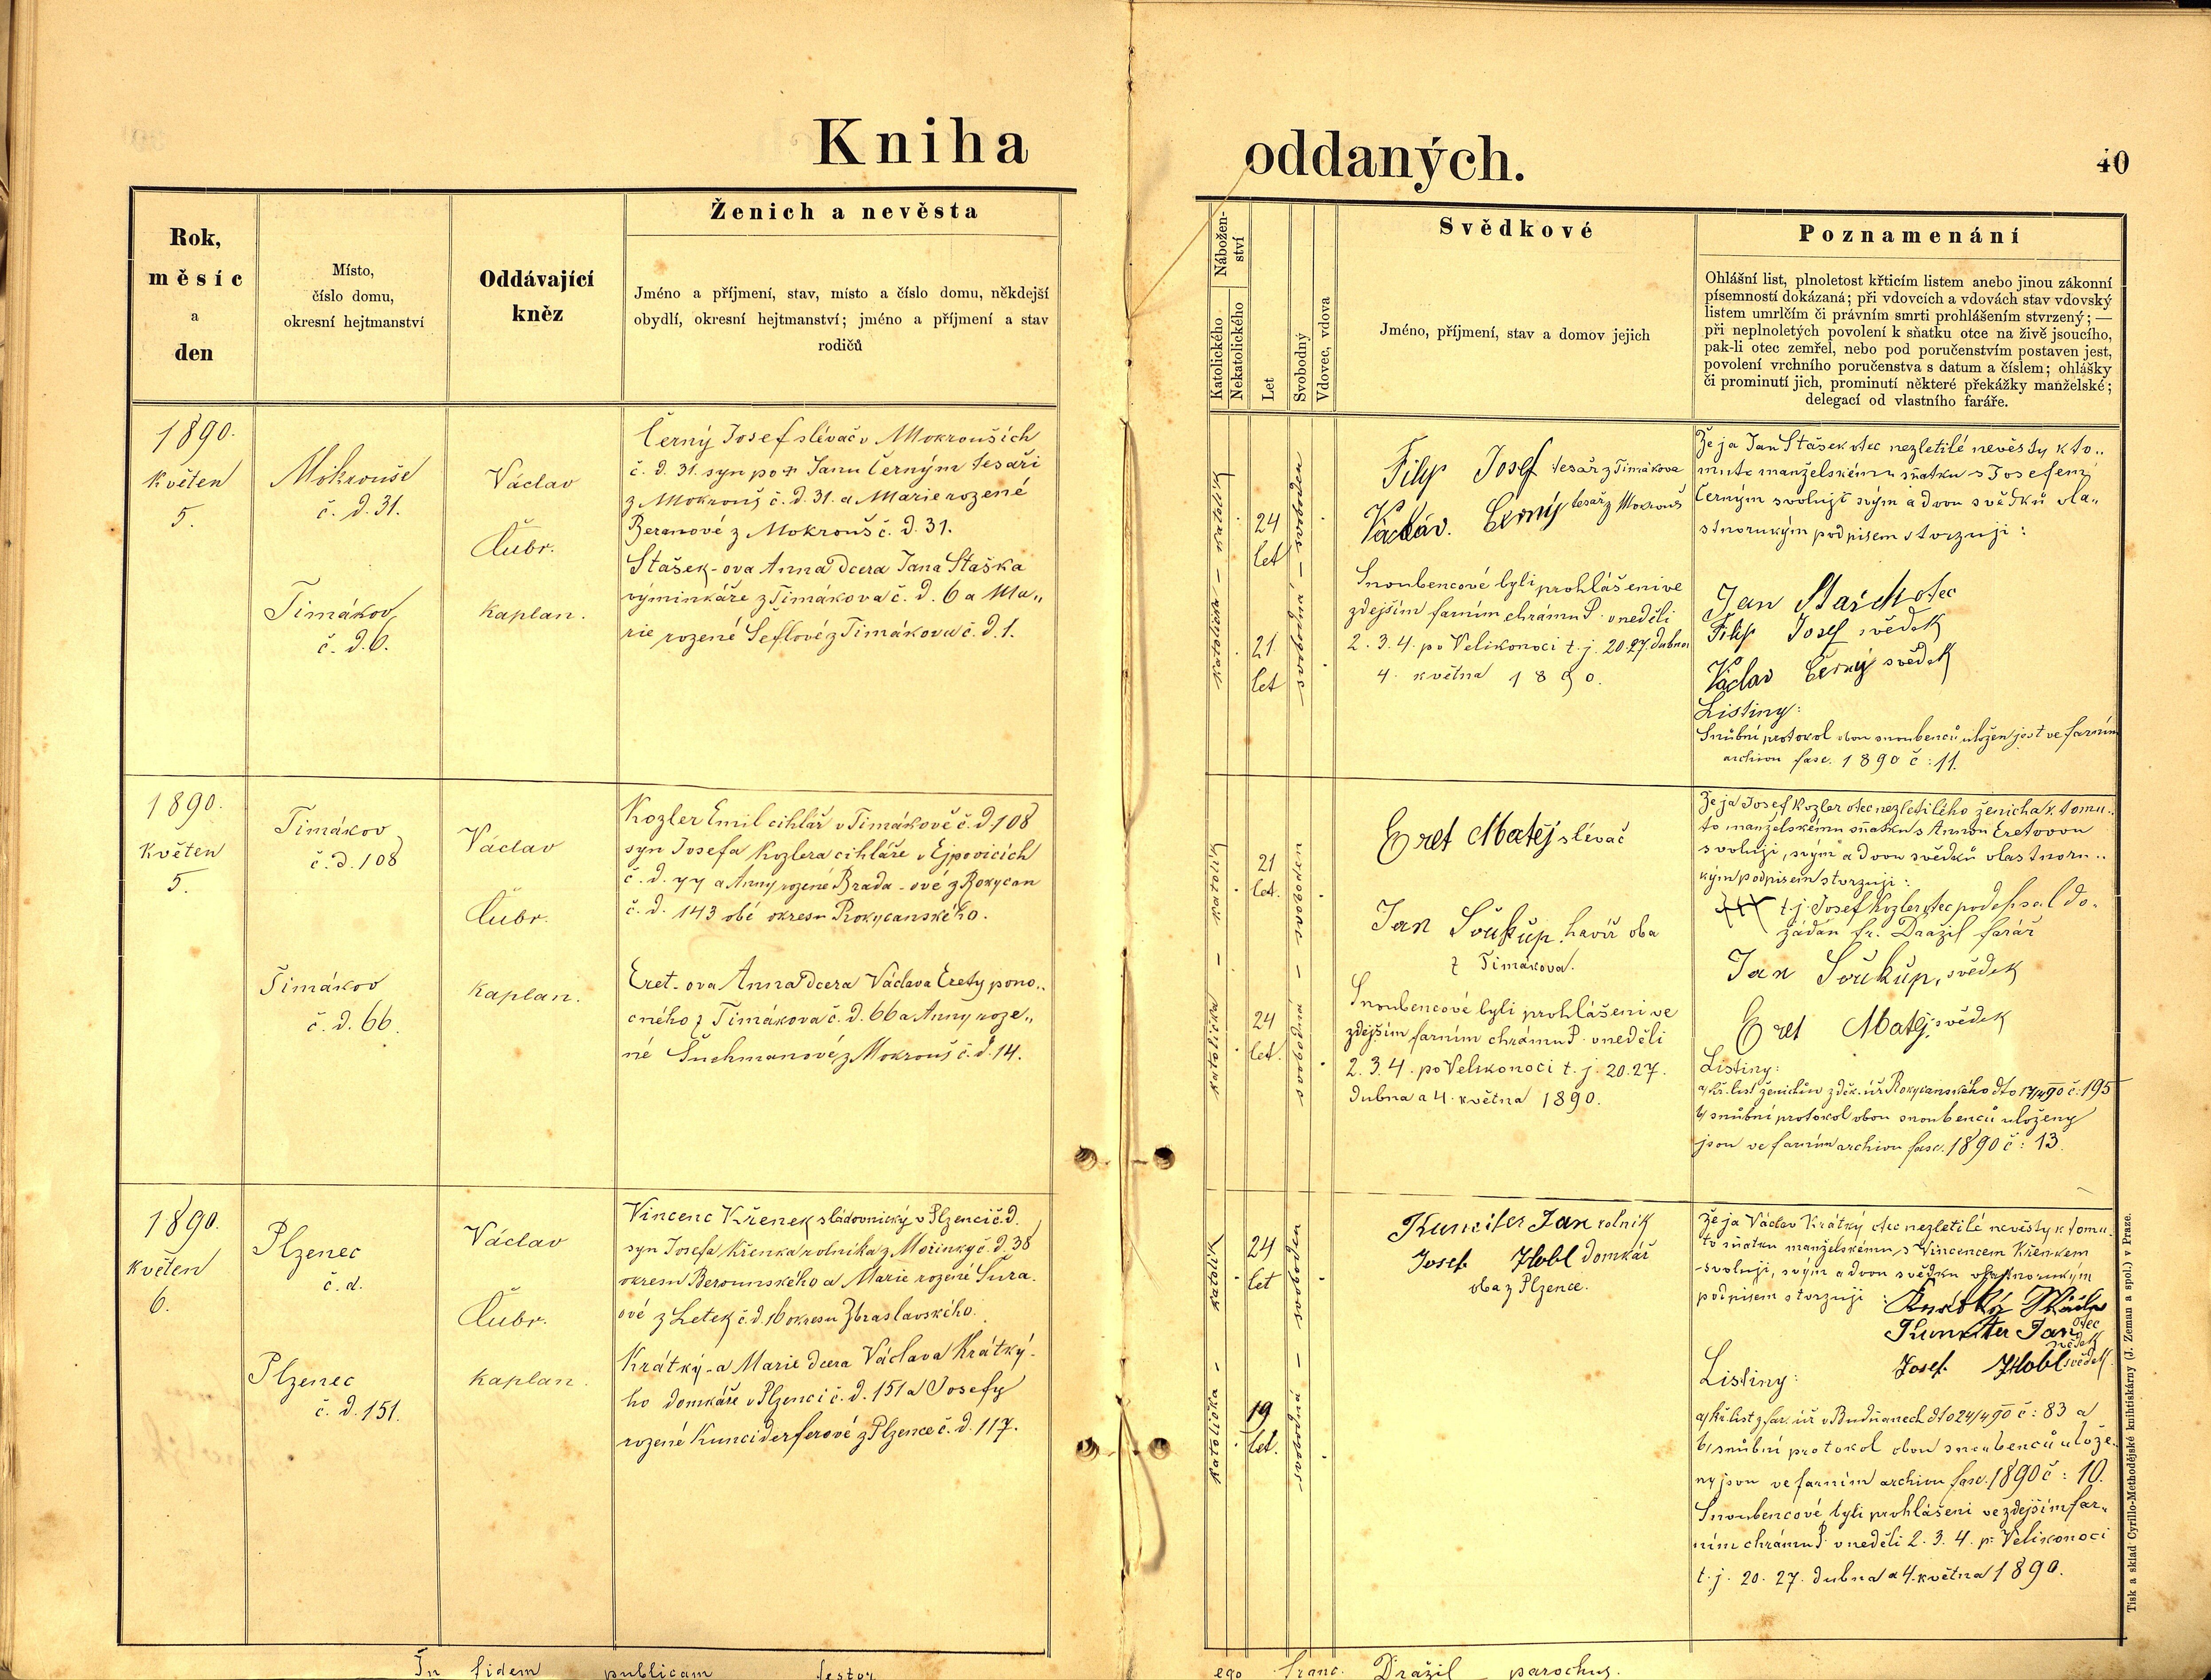 Kniha
oddaných.
40
Rok,
měsíc
a
den
Místo,
číslo domu,
okresní hejtmanství
Oddávající
kněz
Ženich a nevěsta
Jméno a příjmení, stav, místo a číslo domu, někdejší
obydlí, okresní hejtmanství; jméno a příjmení a stav
rodičů
Nábožen-
ství
Katolického
Nekatolického
Let
Svobodný
Vdovec, vdova
Svědkové
Jméno, příjmení, stav a domov jejich
Poznamenání
Ohlášní list, plnoletost křticím listem anebo jinou zákonní
písemností dokázaná; při vdovcích a vdovách stav vdovský
listem umrlčím či právním smrti prohlášením stvrzený; —
při neplnoletých povolení k sňatku otce na živě jsoucího,
pak-li otec zemřel, nebo pod poručenstvím postaven jest,
povolení vrchního poručenstva s datum a číslem; ohlášky
či prominutí jich, prominutí některé překážky manželské;
delegací od vlastního faráře.
1890.
Květen
5.
Mokrouše
č. d. 31.
Timákov
č. d. 6.
Václav
Čubr.
Kaplan.
Černý Josef slévač v Mokrouších
č. d. 31. syn po † Janu Černým tesaři
z Mokrouš č. d. 31. a Marie rozené
Beranové z Mokrouš č. d. 31.
Stašek-ova Anna dcera Jana Staška
výminkáře z Timákova č. d. 6 a Ma„
rie rozené Šeflové z Timákova č. d. 1.
katolička - katolík
24
let
21
let
svobodná - svoboden
Filip Josef tesař z Timákova
Václav Černý tesař z Mokrouš
Snoubencové byli prohlášeni ve
zdejším farním chrámu P. v neděli
2. 3. 4. po Velikonoci t. j. 20. 27. dubna
4. května 1890.
Že ja Jan Stašek otec nezletilé nevěsty k to„
muto manželskému sňatku s Josefem
Černým svoluji svým a dvou svědků vla„
stnorukým podpisem stvrzuji:
Jan Stašek otec
Filip Josef svědek
Václav Černý svědek
Listiny:
Snubní protokol obou snoubenců uložen jest ve farním
archivu fasc. 1890 č: 11.
1890.
Květen
5.
Timákov
č. d. 108
Timákov
č. d. 66.
Václav
Čubr.
Kaplan.
Kozler Emil cihlář v Timákově č. d. 108
syn Josefa Kozlera cihláře v Ejpovicích
č. d. 77 a Anny rozené Brada-ové z Rokycan
č. d. 143 obé okresu Rokycanského.
Eret-ova Anna dcera Václava Erety pono„
cného z Timákova č. d. 66 a Anny roze„
né Šuchmanové z Mokrouš č. d. 14.
katolička - katolík
21
let.
24
let.
svobodná - svoboden
Eret Matěj slévač
Jan Soukup havíř oba
z Timákova.
Snoubencové byli prohlášeni ve
zdejším farním chrámu P. v neděli
2. 3. 4. po Velikonoci t. j. 20. 27.
dubna a 4. května 1890.
Že ja Josef Kozler otec nezletilého ženicha k tomu„
to manželskému sňatku s Annou Eretovou
svoluji, svým a dvou svědků vlastnoru„
kým podpisem stvrzuji:
+++ t. j. Josef Kozler otec podepsal do„
žádán fr. Dražil farář
Jan Soukup, svědek
Eret Matěj, svědek
Listiny:
a/ kř. list ženichův z děk. úř. Rokycanského dto 17/4 90 č: 195
b/ snubní protokol obou snoubenců uloženy
jsou ve farním archivu fasc. 1890 č: 13.
1890.
Květen
6.
Plzenec
č. d.
Plzenec
č. d. 151.
Václav
Čubr.
Kaplan.
Vincenc Křenek sládovnický v Plzenci č. d.
syn Josefa Křenka rolníka z Mořinky č. d. 38
okresu Berounského a Marie rozené Šura-
ové z Letek č. d. 16 okresu Zbraslavského.
Krátký-a Marie dcera Václava Krátký-
ho domkáře v Plzenci č. d. 151 a Josefy
rozené Kunciderferové z Plzence č. d. 117.
katolička - katolík
24
let
19
let.
svobodná - svoboden
Jan rolník
Josef Hobl domkář
oba z Plzence.
Že ja Václav Krátký otec nezletilé nevěsty k tomu„
to sňatku manželskému s Vincencem Křenkem
svoluji, svým a dvou svědku vlastnorukým
podpisem stvrzuji: Krátký
otec
Jan svědek
Josef Hobl svědek.
Listiny:
a/ kř. list z far. úř. v Budňanech dto 24/4 90 č: 83 a
b/ snubní protokol obou snoubenců ulože„
ny jsou ve farním archivu fasc. 1890 č: 10.
Snoubencové byli prohlášeni ve zdejším far„
ním chrámu P. v neděli 2. 3. 4. p. Velikonoci
t. j. 20. 27. dubna a 4. května 1890.
Tisk a sklad Cyrillo-Methodějské knihtiskárny (J. Zeman a spol.) v Praze.
In fidem publicam testor
ego franc. Dražil parochus.